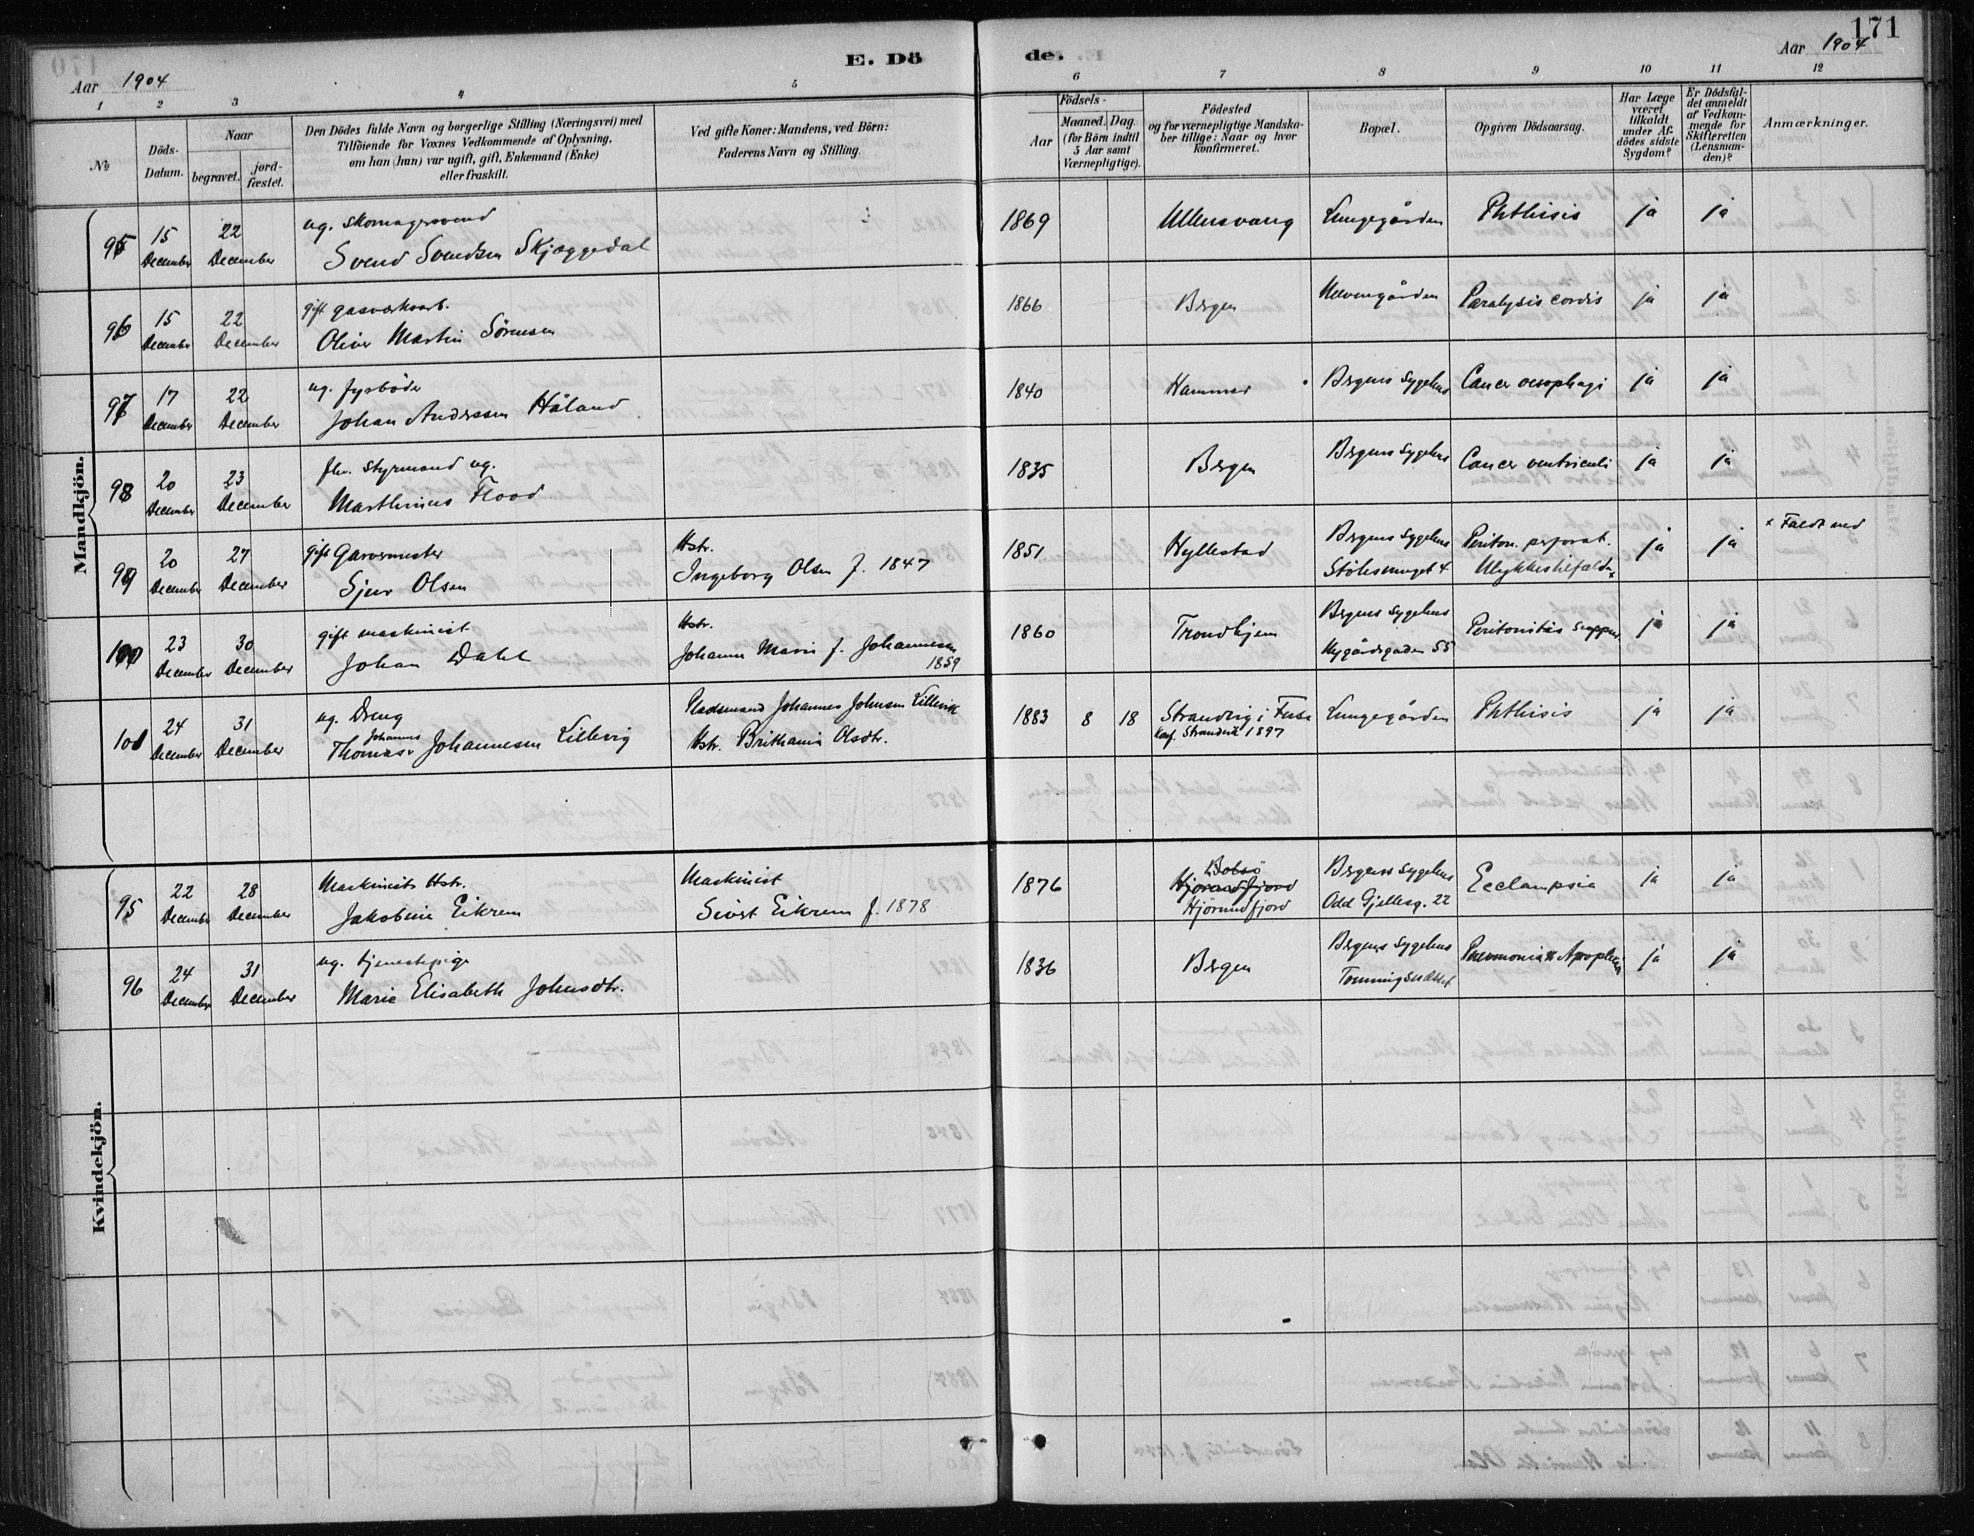 171
E. Dö de.
Aar 1904 Aar 1904
1 2 3 4 5 6 7 8 9 10 11 12
No
Döds-Datum.
Naar
begravet.
jord-fæstet.
Den Dödes fulde Navn og borgerlige Stilling (Næringsvei) med
Tilföiende for Voxnes Vedkommende af Oplysning,
om han (hun) var ugift, gift, Enkemand (Enke)
eller fraskilt.
Ved gifte Koner: Mandens, ved Börn:
Faderens Navn og Stilling.
Födsels-
Aar
Maaned. Dag.
(for Börn indtil
5 Aar samt
Værnepligtige).
Födested
og for værnepligtige Mandska-
ber tillige: Naar og hvor
konfirmeret.
Bopæl.
Opgiven Dödsaarsag.
Har Læge
været
tilkaldt
under Af-
dödes sidste
Sygdom?
Er Dödsfal-
det anmeldt
af Vedkom-
mende for
Skifteretten
(Lensman-
den)?
Anmærkninger.
Mandkjön.
95 15 December 22 December ug. Skomagersvend
Svend Svendsen Skjæggedal 1869 Ullensvang Lungegården Phthisis ja ja
96 15 December 22 December gift gasværksarb.
Oliver Martin Sörensen 1866 Bergen Paralysis cordis ja ja
97 17 December 22 December ug. fyrböder
Johan Andersen Håland 1840 Hammer Bergens Sygehus Cancer oesophagi ja ja
98 20 December 23 December fhv. Styrmand ug.
Marthinus Flood 1835 Bergen Bergens Sygehus Cancer ventriculi ja ja
99 20 December 27 December gift Garvermester
Sjur Olsen Hstr.
Ingeborg Olsen f. 1847 1851 Hyllestad Bergens Sygehus
Stölesmuget 4 Periton. perforat.
Ulykkestilfælde x ja ja x Faldt ned
100 23 December 30 December gift maskinist
Johan Dahl Hstr.
Johanne Marie f. Johannesen
1859 1860 Trondhjem Bergens Sygehus
Nygårdsgaden 55 Peritonitis suppur. ja ja
101 24 December 31 December ug. Dreng
Johannes
Thomas Johannesen Lillevig Pladsmand Johannes Johnsen Lillevik
Hstr. Brithanna Olsdtr. 1883 8 18 Strandvig i Fuse
Konf. Strandvik 1897 Lungegården Phthisis ja ja
Kvindekjön.
95 22 December 28 December Maskinists Hstr.
Jakobine Eikrem Maskinist
Sivert Eikrem f. 1878 1876 Hjörundfjord
Hjörundfjord Bergens Sygehus
Odd Gjellesg. 22 Ecclampsia ja ja
96 24 December 31 December ug. tjenestepige
Marie Elisabeth Johnsdtr. 1836 Bergen Bergens Sygehus Pneumonia Apoplexia ja ja